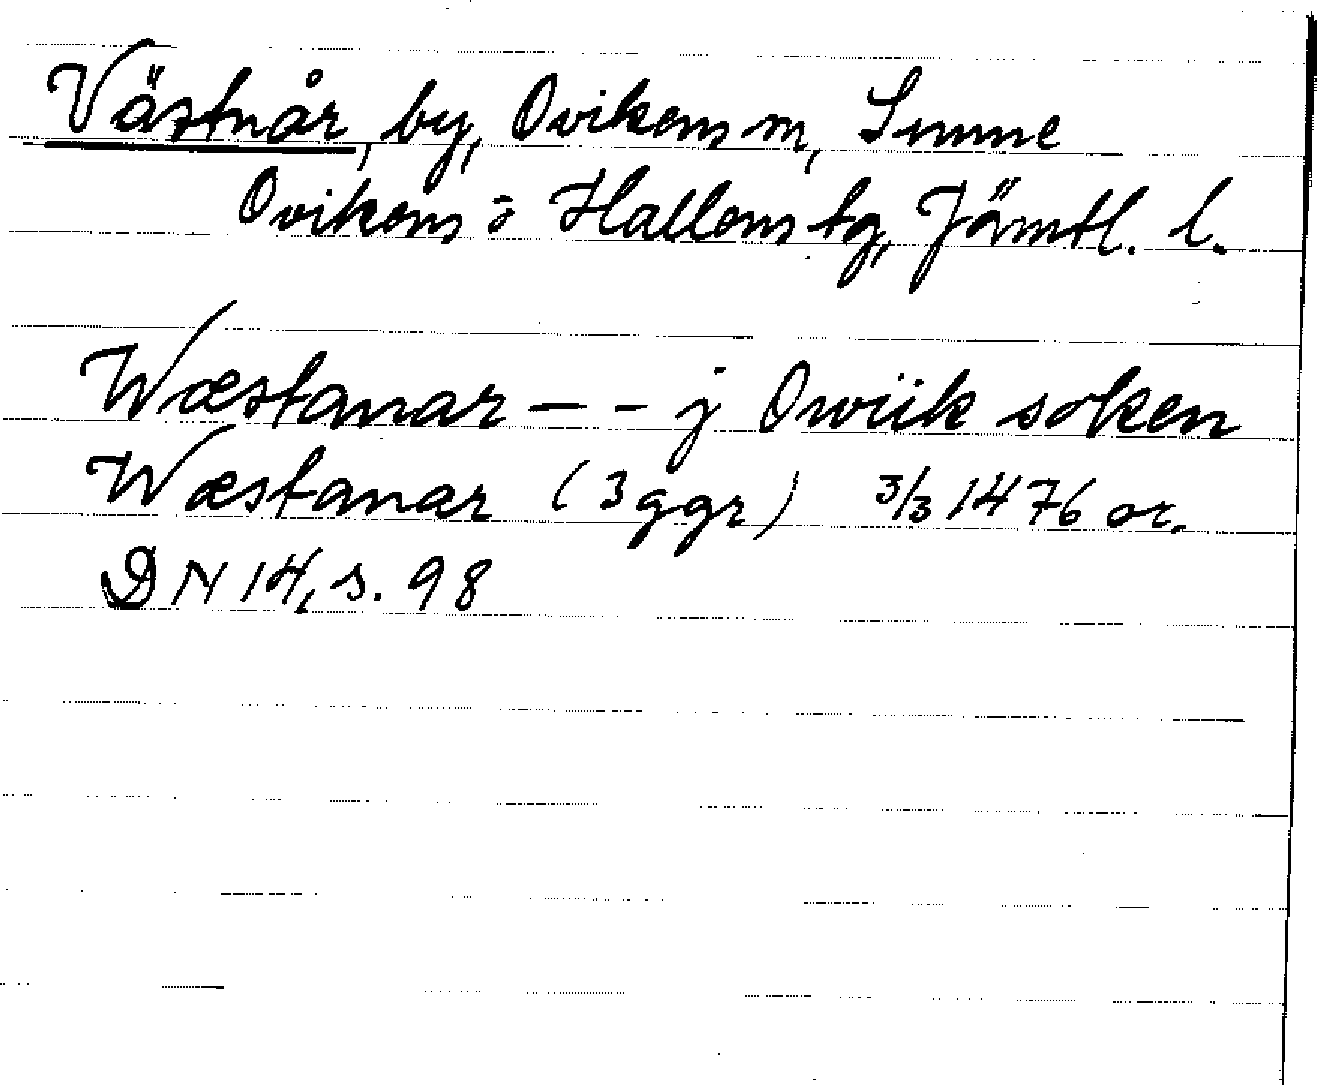 Västnår, by, Ovikens sn, Sunne
Ovikens o Hallens tg, Jämtl. l.
Wæstanar – – j Owiik soken
Wæstanar (3 ggr) 3/3 1476 or.
DN 14, s. 98